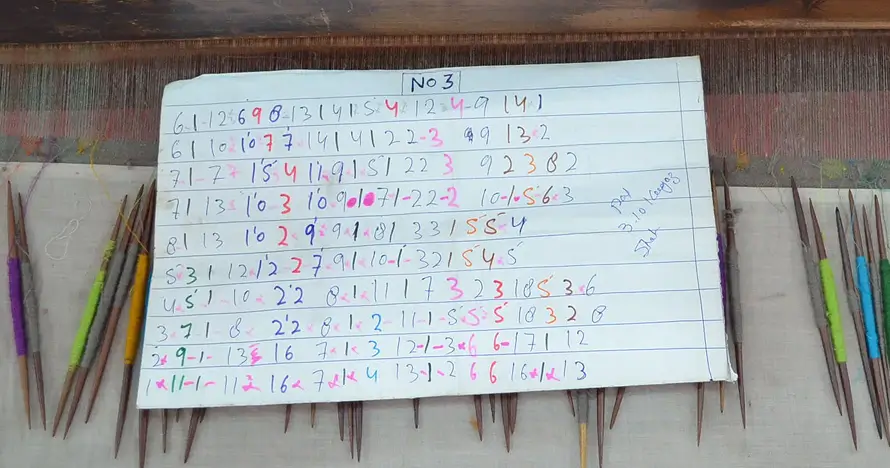 NO 3
6 1 - 12 6 9 8 - 13 1 4 1 5 4 12 4 - 9 1 4 1
6 1 10 10 7 7 14 1 4 1 2 2 - 3 9 13 2
7 1 - 7 7 15 4 11 9 1 5 1 22 3 9 2 3 8 2
7 1 13 10 3 10 9 1 7 1 - 22 - 2 10 - 1 5 6 3
8 1 13 10 2 9 9 1 8 1 3 3 1 5 5 4
5 3 1 12 12 2 7 9 1 10 - 1 - 3 2 1 5 4 5
4 5 1 - 10 2 2 8 1 11 1 7 3 2 3 18 5 3 6
3 7 1 - 8 2 2 8 1 2 - 11 - 1 - 5 5 5 18 3 2 8
2 9 - 1 - 13 16 7 1 3 12 - 1 - 3 6 6 - 17 1 12
1 11 - 1 - 11 2 16 7 1 4 13 - 1 2 6 6 16 1 13